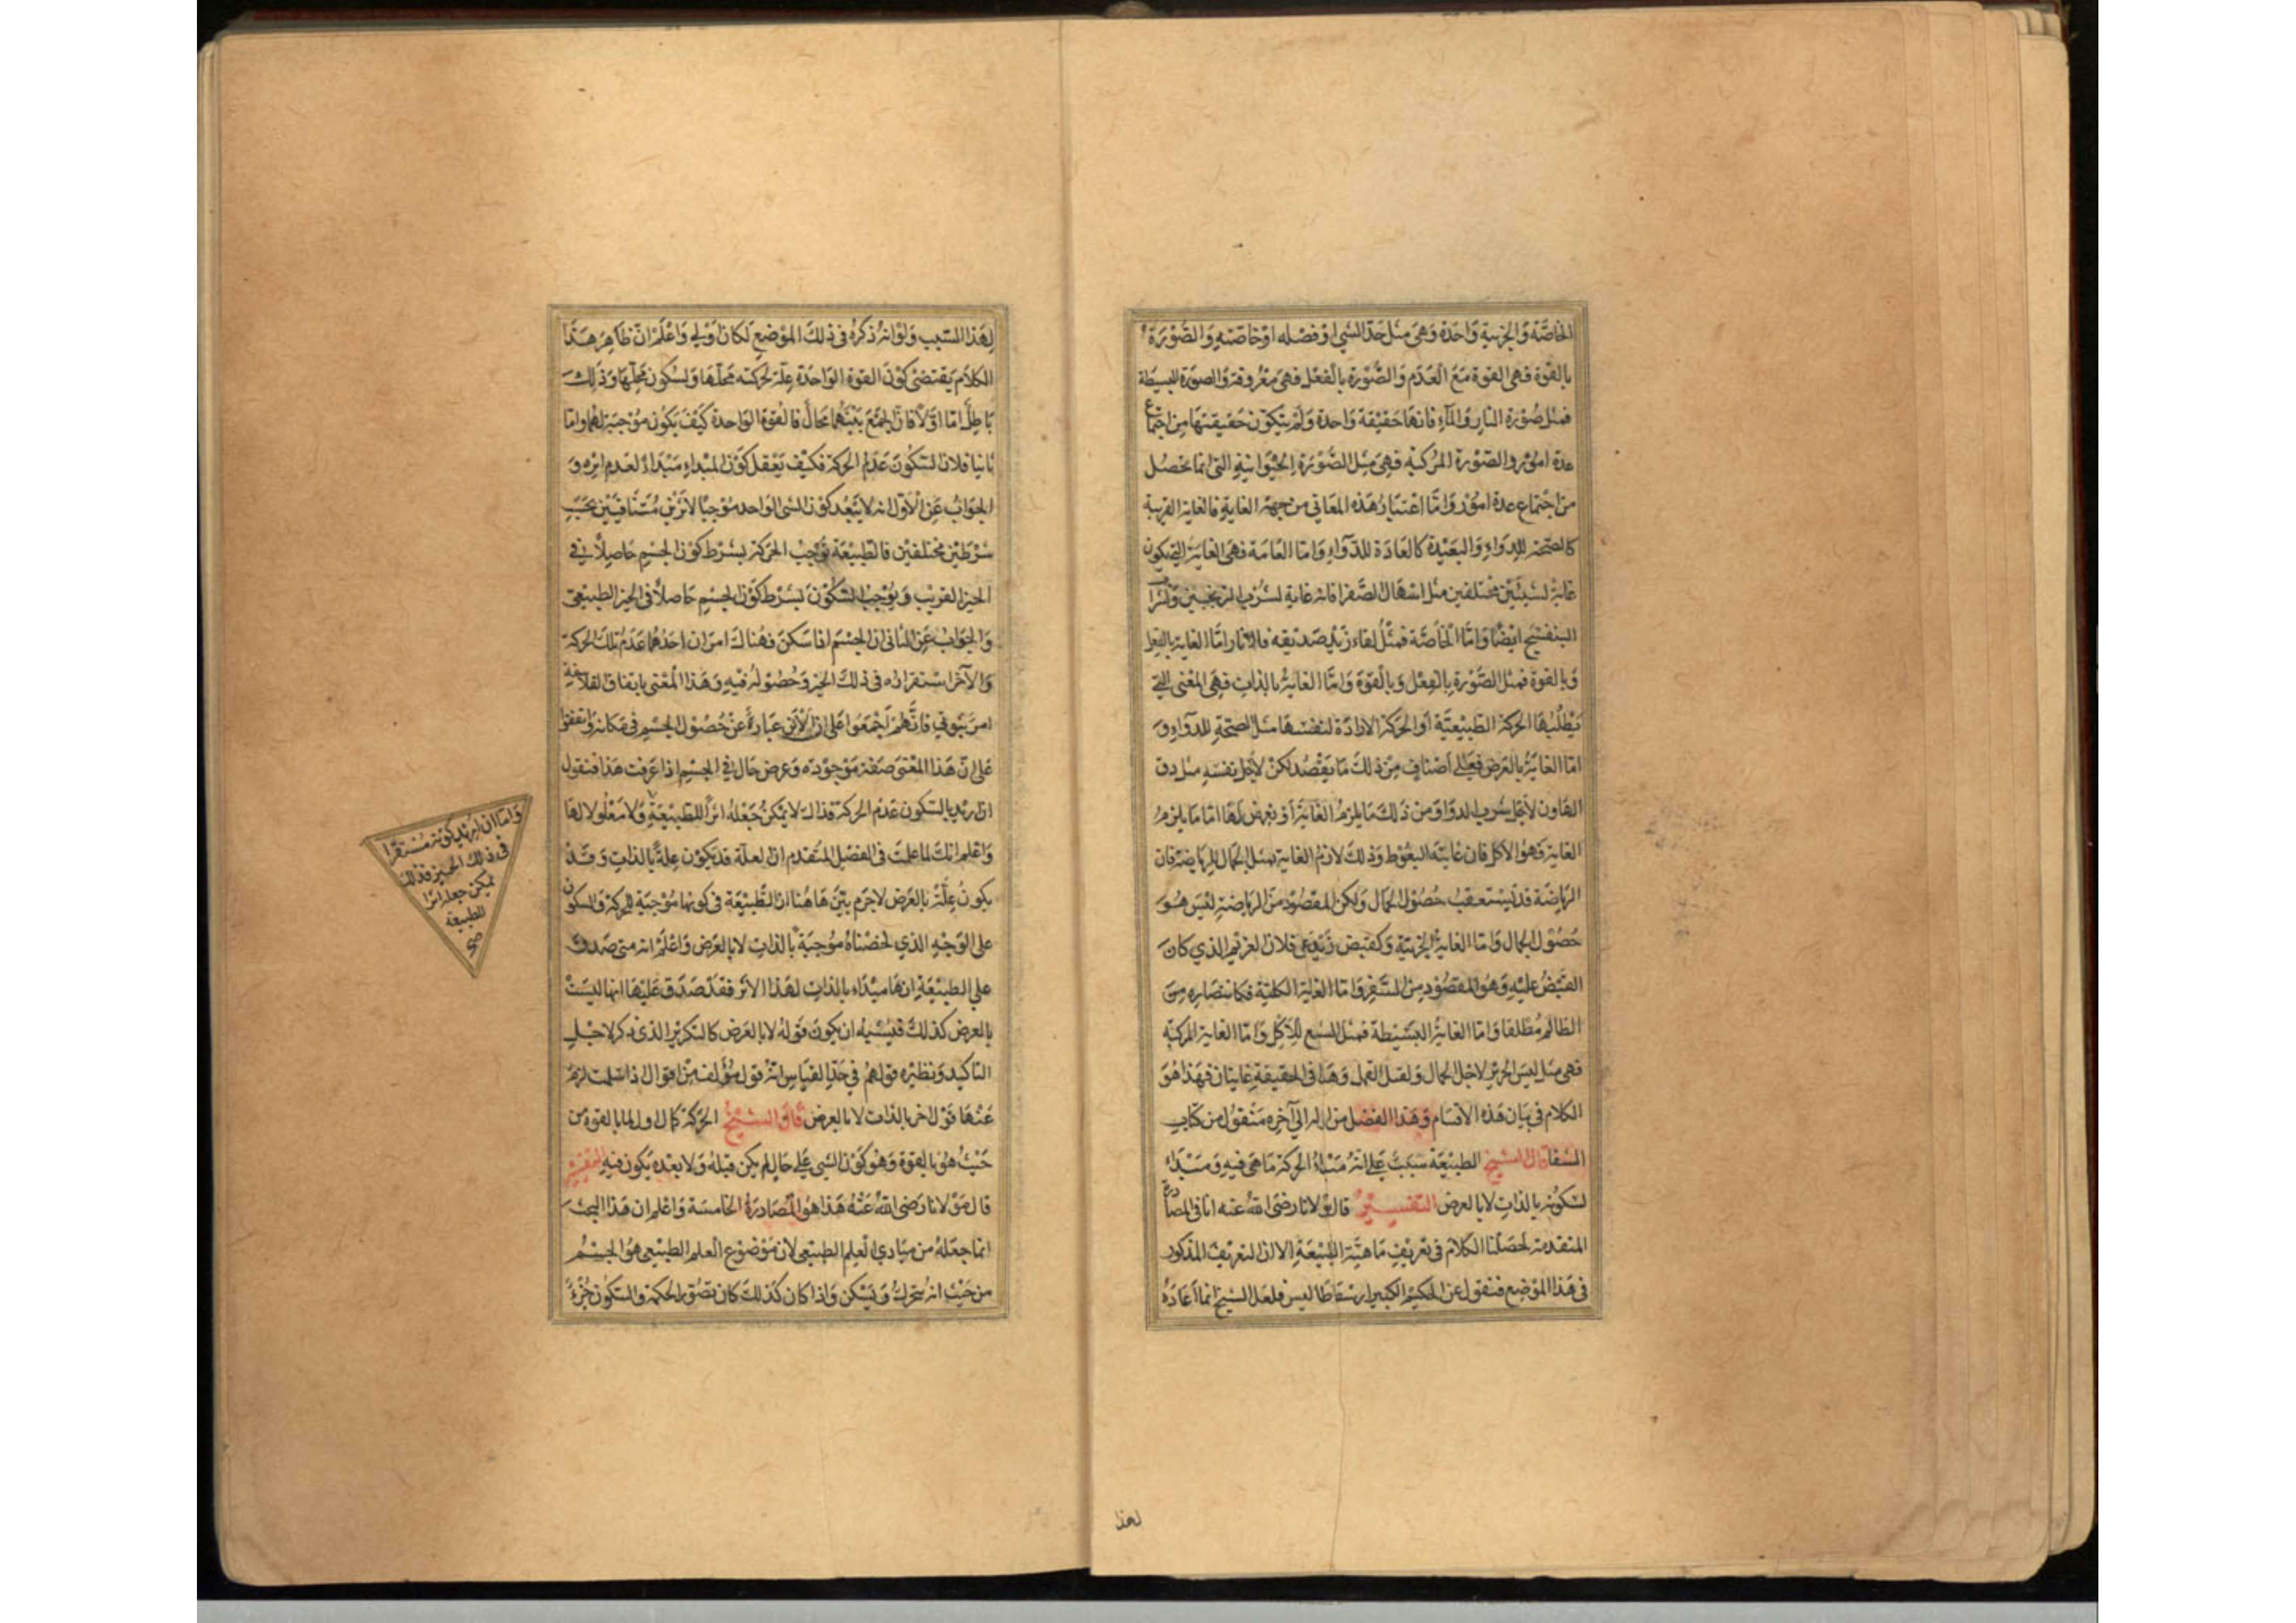 الخاصّة والجزئية واحدة وهي مثل حدّ الشي او فصله او خاصّته والصّورة
بالقوة فهي القوة مع العدم والصّورة بالفعل فهي معروفة والصورة البسيطة
فمثل صُورة النار والمآء فانها حقيقة واحدة ولم يتكون حقيقتها من اجتماع
عدة امور والصّورة المركبة فهي مثل الصّورة الحيوانية التي انما تحصل
من اجتماع عدة امور وامّا اعتبار هذه المعاني من جهة الغاية فالغاية القريبة
كالصحة للدواء والبعيدة كالعادة للدّواء وامّا العامة فهي الغاية التي يكون
غاية لشيئين مختلفين مثل اسهال الصّفرا فانه غاية لشرب الترنجبين وشراب
البنفسج ايضًا وامّا الخاصّة فمثل لقاء زيد صديقه فلانا وامّا الغاية بالفعل
وبالقوة فمثل الصّورة بالفعل وبالقوة وامّا الغاية بالذات فهي المعنى التي
يطلبها الحركة الطبيعيّة او الحركة الارادة لنفسها مثل الصحّة للدوآء و
امّا الغاية بالعرض فعلى أصناف من ذلك ما يقصد لكن لاجل نفسه مثل دق
الهاون لاجل شرب الدواء ومن ذلك ما يلزم الغاية او يعرض لها امّا ما يلزم
الغاية فهو الاكل فان غايته التغوط وذلك لازم الغاية بمثل الجمال للرياضة فان
الرياضة قد يستعقب حصُول الجمال ولكن المقصُود من الرياضة ليس هو
حصُول الجمال وامّا الغاية الجزئية وكقبض زيد على فلان الغريم الذي كان
القبض عليه وهو المقصُود من السّفر وامّا الغاية الكلية فكانتصاره من
الظالم مُطلقا وامّا الغاية البسيطة فمثل الشبع للاكل وامّا الغاية المركبة
فهي مثل لبس الحرير لاجل الجمال ولقتل القمل وهما في الحقيقة غايتان فهذا هو
الكلام في بيان هذه الاقسام وهذا الفصل من اوله الى آخره منقول من كتاب
الشفا قال الشيخ الطبيعة سبب على انه مبداء الحركة ما هي فيه ومبداء
لسكونه بالذات لا بالعرض التفسير قال مولانا رضى الله عنه انا في المصادرة
المتقدمة لخصنا الكلام في تعريف ماهيّة الطبيعة الا ان التعريف المذكور
في هذا الموضع فنقول عن الحكيم الكبير ارسطاطاليس فلعل الشيخ انما أعاده
لهذا
لهذا السّبب ولو انه ذكره في ذلك الموضع لكان اولى واعلم انّ ظاهر هذا
الكلام يقتضى كون القوة الواحدة علّة لحركته محلّها ولسكون محلّها وذلك
باطل امّا اوّلًا فان الجمع بينهما محال فالقوة الواحدة كيف يكون موجبة لهما وامّا
ثانيا فلان السّكون عدم الحركة فكيف يعقل كون المبداء مبداءً لعدم اثره و
الجواب عن الاوّل انه لا يبعد كون الشي الواحد موجبًا لاثرين مُتنافيين بحسب
شرطين مختلفين فالطبيعة توجب الحركة بشرط كون الجسم حاصلًا في
الحيز الغريب ويُوجب السّكون بشرط كون الجسم حاصلًا في الحيز الطبيعي
والجواب عن الثاني ان الجسم اذا سكن فهناك امران احدهما عدم تلك الحركة
والآخر استقراره في ذلك الحيّز وحصُوله فيه وهذا المعنى باتفاق الفلاسفة
امر ثبوتي فانّهم أجمعوا على ان الأين عبارة عن حُصُول الجسم في مكانه واتفقوا
على انّ هذا المعنى صفة موجوده وعرض حال في الجسم اذا عرفت هذا فنقول
ان اريد بالسكون عدم الحركة فذاك لا يمكن جعله اثرًا للطبيعة ولا معلولا لها
واعلم انك لما علمت في الفصل المتقدم ان العلّة قد يكون علةً بالذات وقد
يكون علّة بالعرض لاجرم بيّن هاهُنا ان الطبيعة في كونها مُوجبة للحركة والسكون
على الوجه الذي لخصناهُ مُوجبة بالذات لا بالعرض واعلم انه متى صدق
على الطبيعة انها مبداء بالذات لهذا الاثر فقد صدق عليها انها ليست
بالعرض كذلك فيشبه ان يكون قوله لا بالعرض كالتكرير الذي ذكر لاجل
التاكيد ونظيره قولهم في حدّ القياس انه قول مؤلف من اقوال اذا سلمت لزم
عنها قول اخر بالذات لا بالعرض قال الشيخ الحركة كمال اول لما بالقوة من
حيثُ هُو بالقوة وهو كون الشي على حال لم يكن قبله ولا بعده يكون فيه التفسير
قال مولانا رضى الله عنه هذا هو المُصادرة الخامسة واعلم ان هذا البحث
انما جعله من مبادي العلم الطبيعي لان موضوع العلم الطبيعي هو الجسم
من حيث انه يتحرك ويسكن واذا كان كذلك كان تصور الحركة والسكون جُزءً
وامّا ان اريد كونه مُستقرًا
في ذلك الحيز فذلك
يمكن جعله اثرًا
للطبيعة
صح